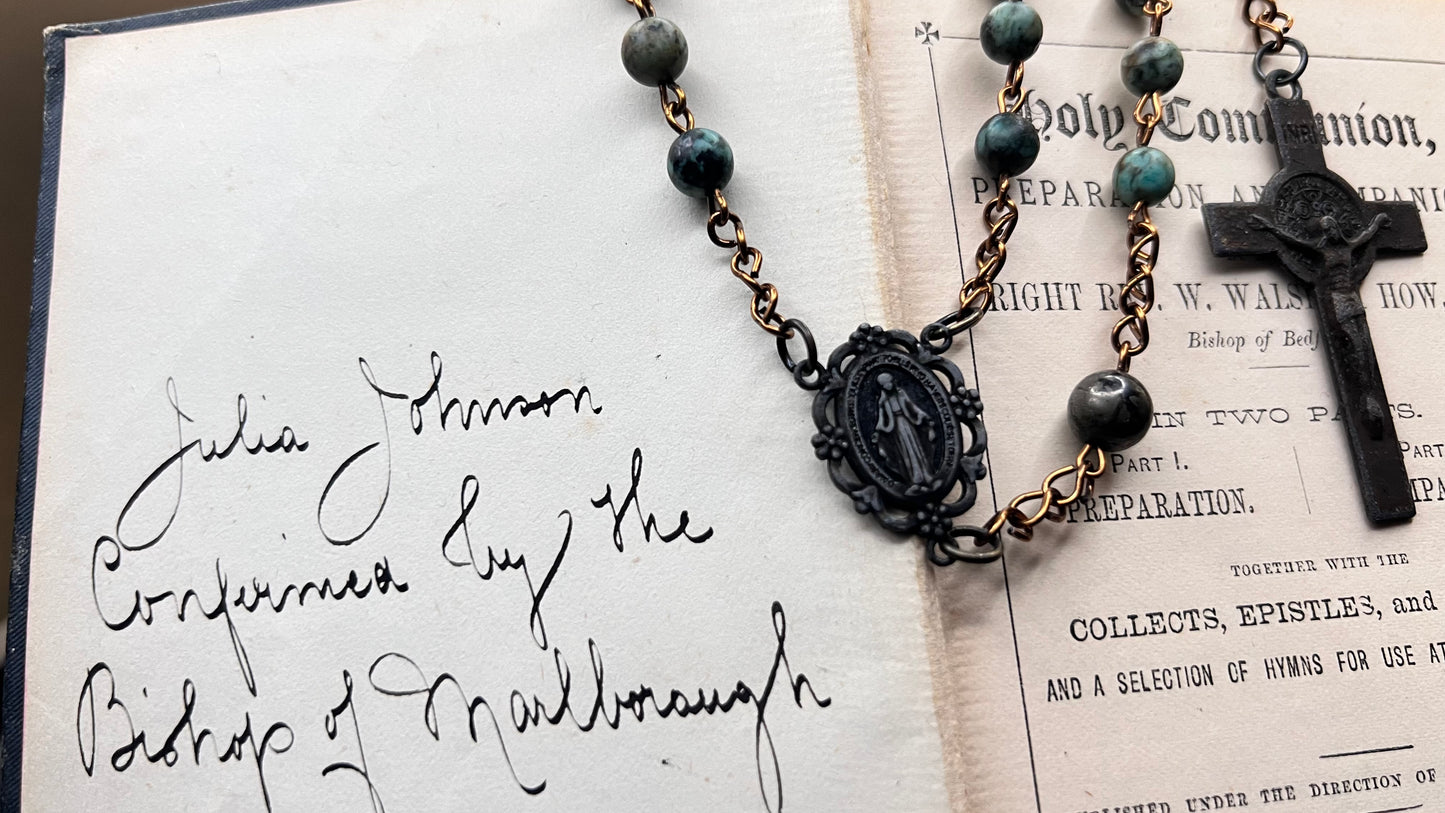 Julia Johnson
Confirmed by the
Bishop of Marlborough
Holy Communion,
PREPARATION AND COMPANIO
RIGHT REV. W. WALSHAM HOW.
Bishop of Bedf
IN TWO PARTS.
PART I.
PREPARATION.
PART
MPA
TOGETHER WITH THE
COLLECTS, EPISTLES, and
AND A SELECTION OF HYMNS FOR USE AT
PUBLISHED UNDER THE DIRECTION OF